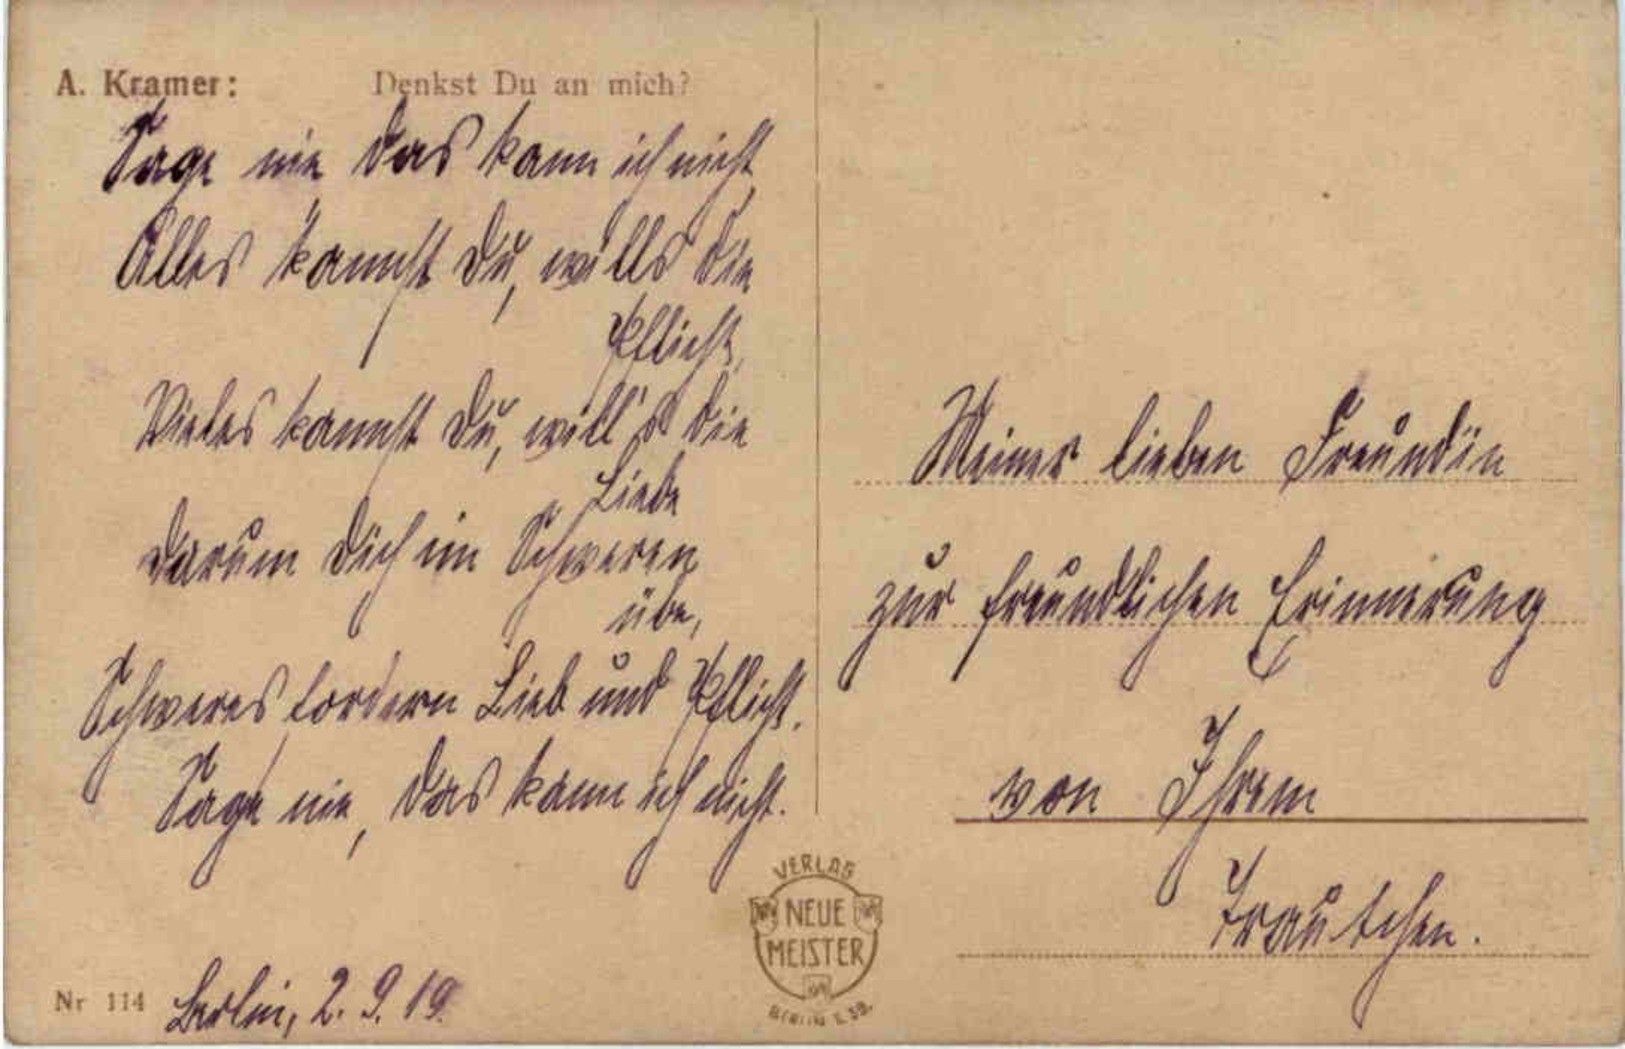 A. Kramer: Denkst Du an mich?
Sage nie das kann ich nicht,
Alles kannst Du, wills die
Pflicht,
Vieles kannst Du, will's die
Liebe
darum Dich im Schweren
übe,
Schweres fordern Lieb und Pflicht.
Sage nie, das kann ich nicht.
Nr 114 Berlin, 2. 9. 19.
Meiner lieben Freundin
zur freundlichen Erinnerung
von Ihrem
Trautchen.
VERLAG
NEUE
MEISTER
BERLIN